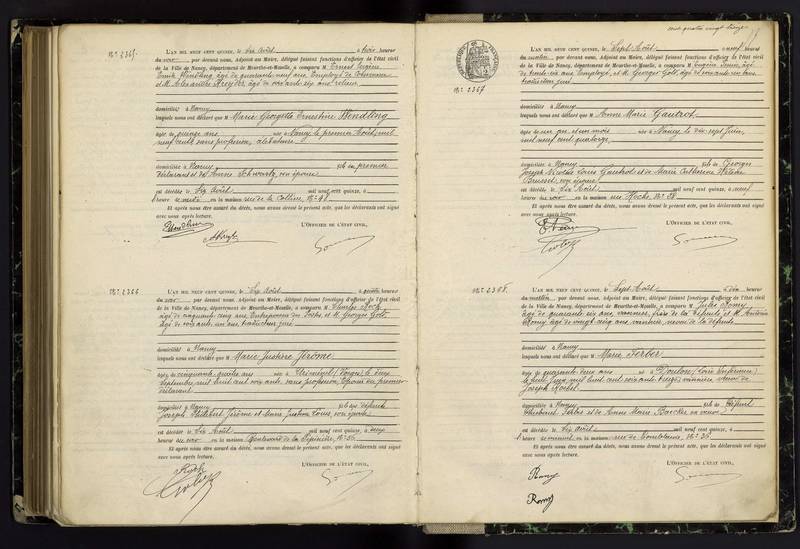 N° 2365.
L'AN MIL NEUF CENT QUINZE, le Six Août à trois heures
du soir par devant nous, Adjoint au Maire, délégué faisant fonctions d'officier de l'état civil
de la Ville de Nancy, département de Meurthe-et-Moselle, a comparu M Ernest Eugène
Emile Wendling, âgé de quarante neuf ans, Employé de
et M. Alexandre âgé de soixante six ans
domicilié à Nancy
lesquels nous ont déclaré que M Marie Georgette Ernestine Wendling
âgée de quinze ans née à Nancy le premier Août mil
neuf cent, sans profession, célibataire
domiciliée à Nancy fille du premier
déclarant et de Schwartz, son épouse
est décédée le Six Août mil neuf cent quinze, à
heure du en la maison rue de la Colline, N° 48
Et après nous être assuré du décès, nous avons dressé le présent acte, que les déclarants ont signé
avec nous après lecture.
L'OFFICIER DE L'ÉTAT CIVIL,
N° 2366
L'AN MIL NEUF CENT QUINZE, le Six Août à quatre heures
du soir par devant nous, Adjoint au Maire, délégué faisant fonctions d'officier de l'état civil
de la Ville de Nancy, département de Meurthe-et-Moselle, a comparu M Charles
âgé de cinquante cinq ans, Entrepreneur des Postes et M. Georges Golb,
âgé de soixante un ans traducteur juré
domicilié à Nancy
lesquels nous ont déclaré que M Marie Justine Jérôme
âgée de cinquante quatre ans née à (Vosges) le deux
Septembre mil huit cent soixante, sans profession, Epouse du premier
déclarant
domiciliée à Nancy fille des défunts
Joseph Jérôme et Marie Justine Louis, son épouse
est décédée le Six Août mil neuf cent quinze, à
heure du soir en la maison Boulevard de la Pépinière, N° 36
Et après nous être assuré du décès, nous avons dressé le présent acte, que les déclarants ont signé
avec nous après lecture.
L'OFFICIER DE L'ÉTAT CIVIL,
cent quatre vingt treize
N° 2367
L'AN MIL NEUF CENT QUINZE, le Sept Août à neuf heures
du matin par devant nous, Adjoint au Maire, délégué faisant fonctions d'officier de l'état civil
de la Ville de Nancy, département de Meurthe-et-Moselle, a comparu M Eugène âgé
de trente six ans Employé, et M. Georges Golb, âgé de soixante un ans
traducteur juré
domicilié à Nancy
lesquels nous ont déclaré que M Anne Marie Gautrot
âgée de un an et un mois née à Nancy le dix sept Juin
mil neuf cent quatorze
domiciliée à Nancy fille de Georges
Joseph Nicolas Louis Gautrot et de Marie Catherine
son épouse
est décédée le Six Août mil neuf cent quinze, à neuf
heures du soir en la maison rue Hoche N° 28
Et après nous être assuré du décès, nous avons dressé le présent acte, que les déclarants ont signé
avec nous après lecture.
L'OFFICIER DE L'ÉTAT CIVIL,
N° 2368.
L'AN MIL NEUF CENT QUINZE, le Sept Août à dix heures
du matin par devant nous, Adjoint au Maire, délégué faisant fonctions d'officier de l'état civil
de la Ville de Nancy, département de Meurthe-et-Moselle, a comparu M Jules Romy
âgé de quarante six ans, vannier, frère de la défunte et M. Antoine
Romy âgé de vingt cinq ans, vannier, neveu de la défunte
domicilié à Nancy
lesquels nous ont déclaré que M Marie Ferber
âgée de quarante deux ans née à (Loire Inférieure)
le huit Juin mil huit cent soixante treize, vannière veuve de
Joseph
domiciliée à Nancy fille de défunt
Ferber et de Anne Marie sa veuve
est décédée le Six Août mil neuf cent quinze, à
heure en la maison rue de N° 35
Et après nous être assuré du décès, nous avons dressé le présent acte, que les déclarants ont signé
avec nous après lecture.
L'OFFICIER DE L'ÉTAT CIVIL,
Romy
Romy